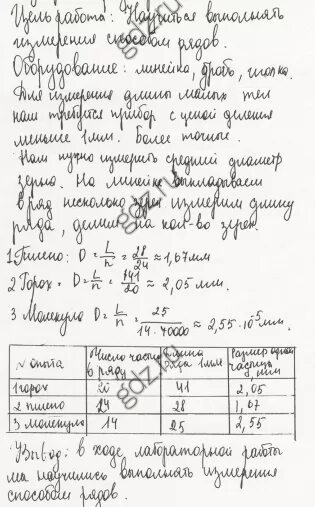 Цель работы: Научиться выполнять
измерения способом рядов.
Оборудование: линейка, дробь, иголка.
Для измерения длины малых тел
нам требуется прибор с ценой деления
меньше 1мм. Более точные.
Нам нужно измерить средний диаметр
зерна. На линейке выкладываем
в ряд несколько зерен измерим длину
ряда, делим на кол-во зерен.
1 Пшено: D = L/n = 28/24 ≈ 1,67мм
2 Горох = D = L/n = 141/20 ≈ 2,05 мм.
3 Молекула D = L/n = 25/14·70000 ≈ 2,55·10⁻⁵ мм.
№ опыта | Число частиц в ряду | Длина ряда 1мм | Размер одной частицы мм
1 горох | 20 | 41 | 2,05
2 пшено | 24 | 28 | 1,67
3 молекула | 14 | 25 | 2,55
Вывод: в ходе лабораторной работы
мы научились выполнять измерения
способом рядов.
gdz.ru
gdz.ru
gdz.ru
gdz.ru